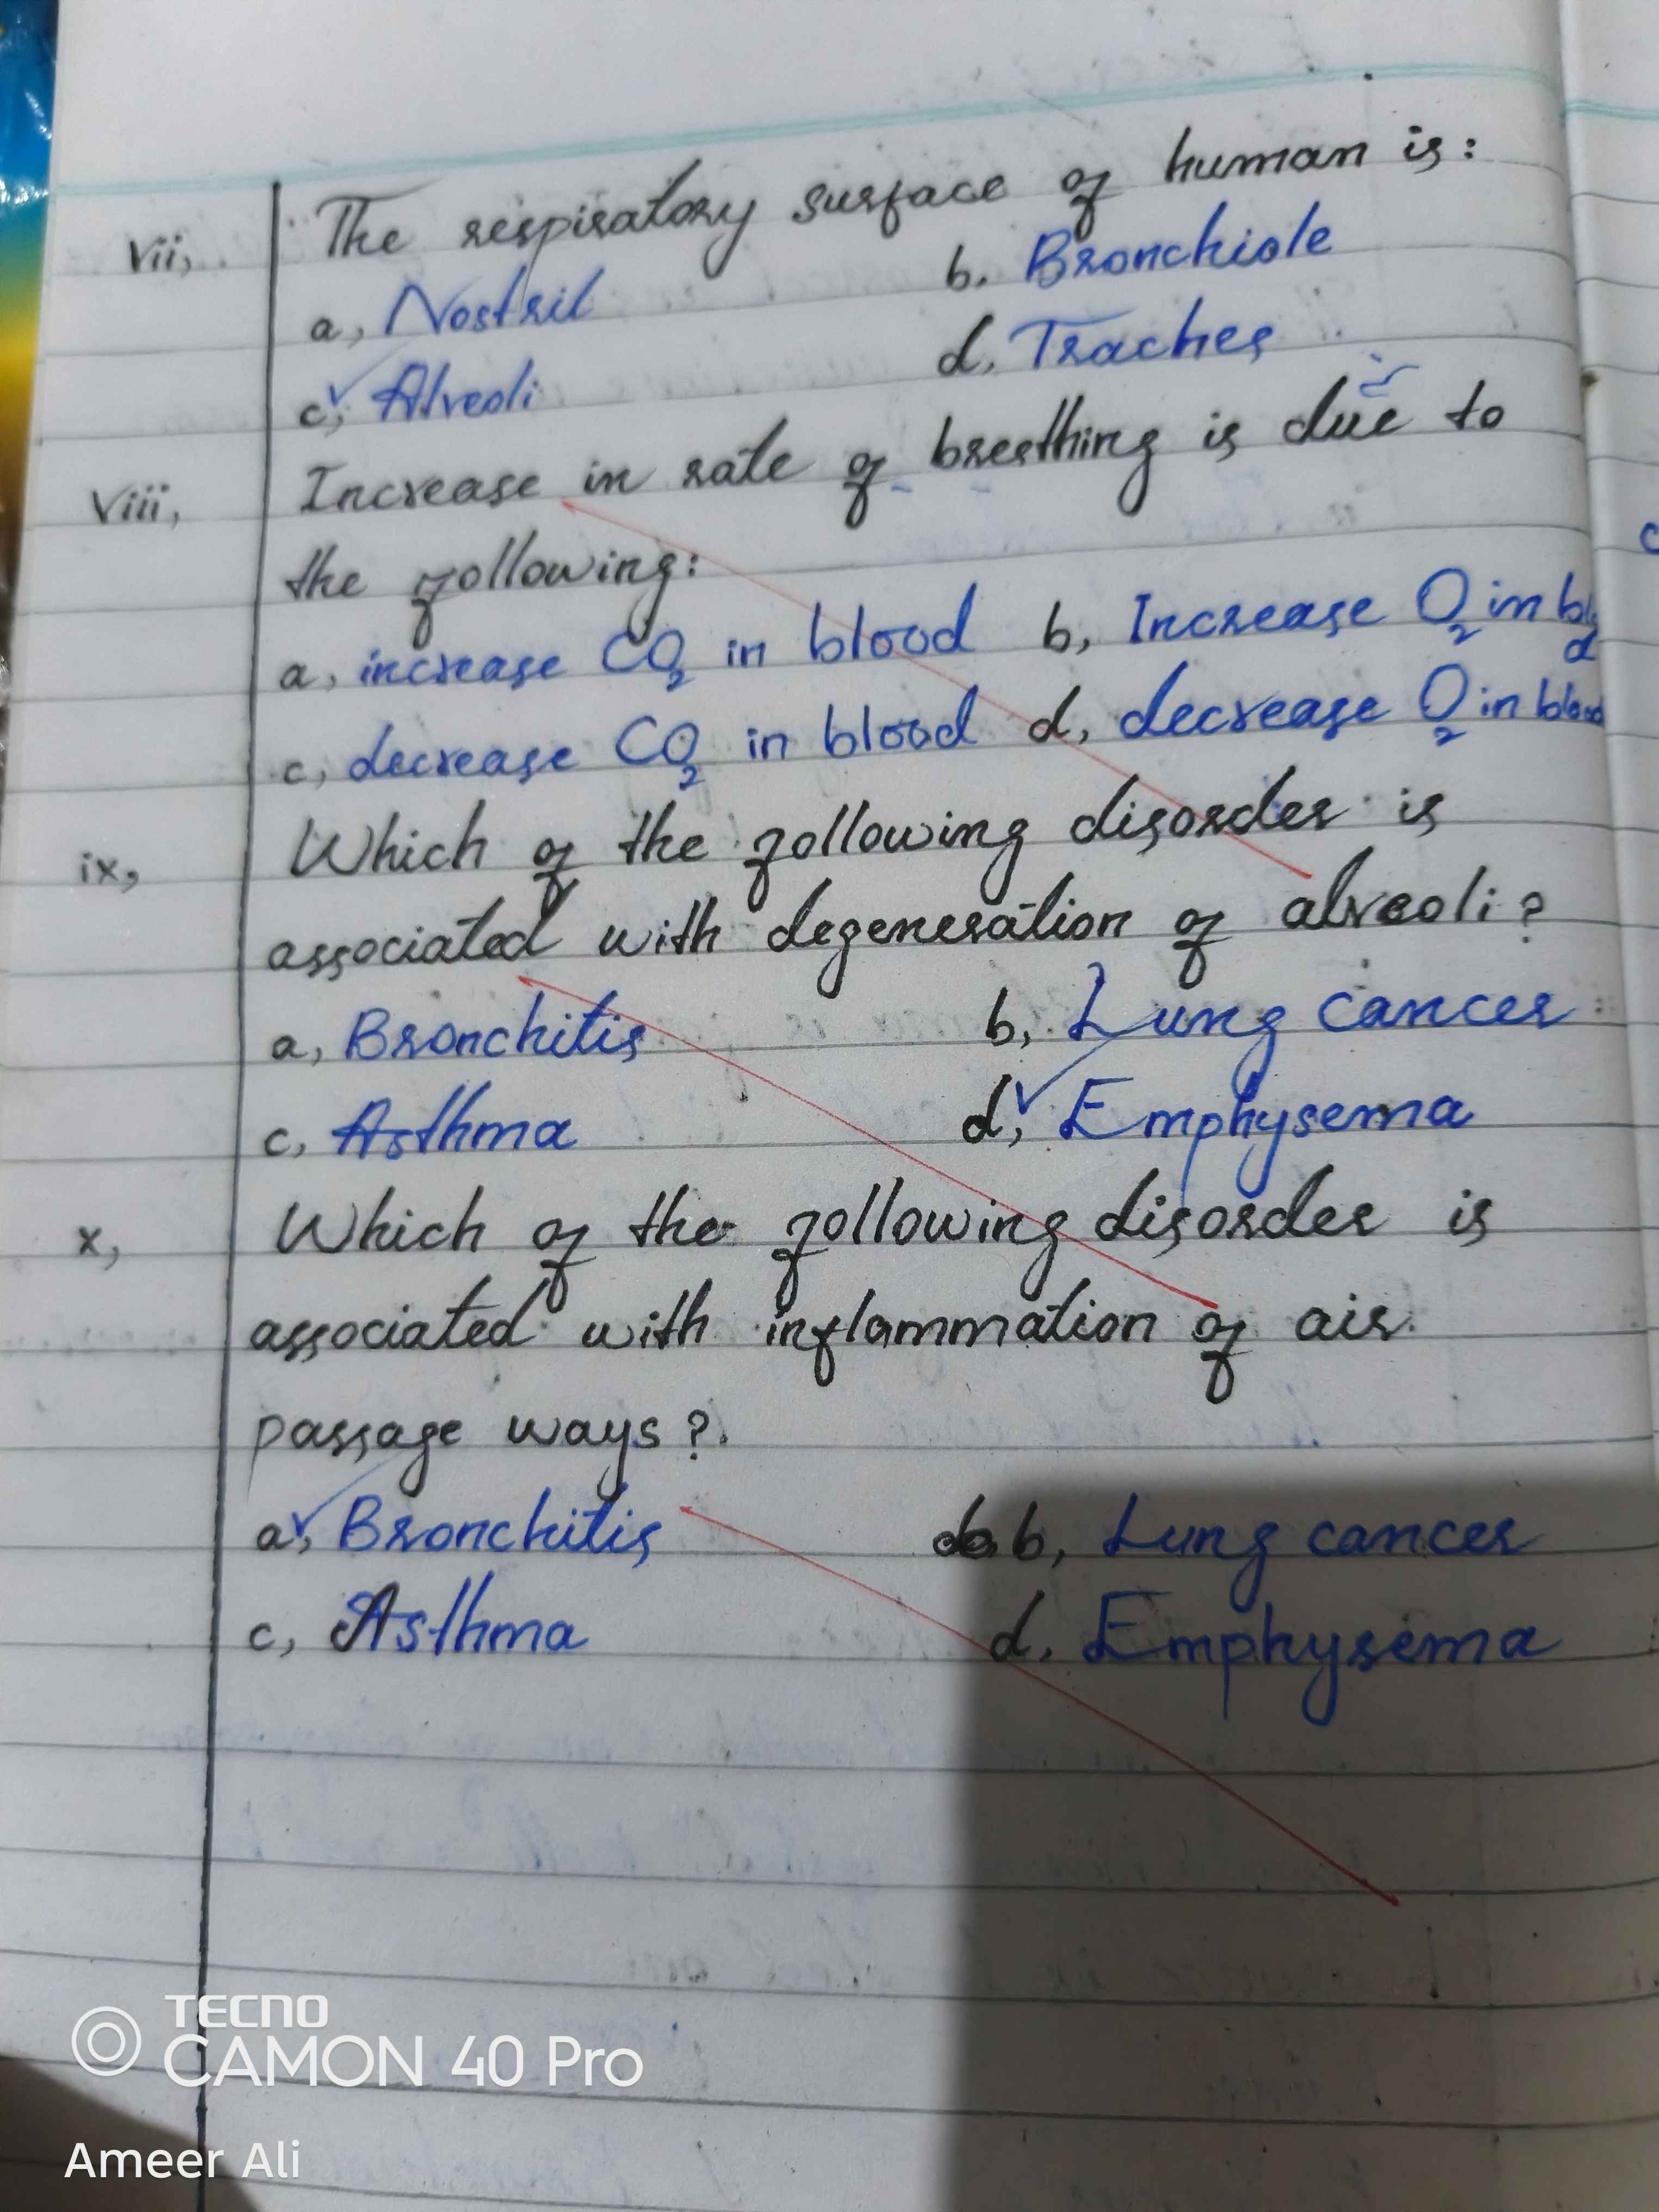 vii, The respiratory surface of human is:
a, Nostril b. Bronchiole
c, Alveoli d, Traches
viii, Increase in rate of breething is due to
the following:
a, increase CO₂ in blood b, Increase O₂ in blo
d
c, decrease CO₂ in blood d, decrease O₂ in blood
ix, Which of the following disorder is
associated with degeneration of alveoli?
a, Bronchitis b, Lung cancer
c, Asthma d, Emphysema
x, Which of the following disorder is
associated with inflammation of air
passage ways?
a, Bronchitis b, Lung cancer
c, Asthma d, Emphysema
TECNO
CAMON 40 Pro
Ameer Ali